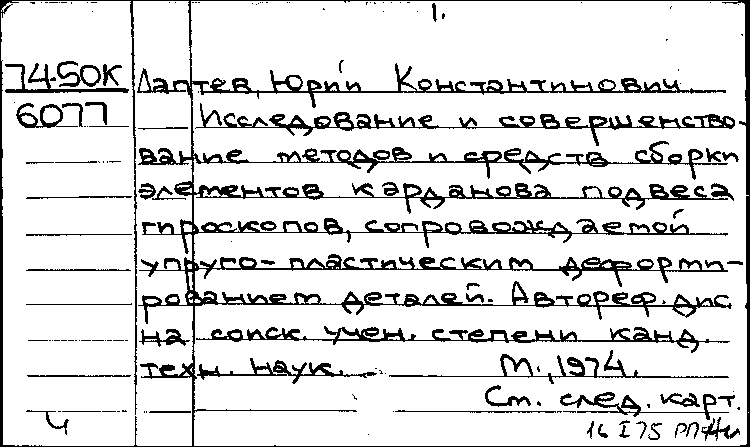 1.
74-50К Лаптев, Юрий Константинович.
6077 Исследование и совершенство-
вание методов и средств сборки
элементов карданова подвеса
гироскопов, сопровождаемой
упруго-пластическим деформи-
рованием деталей. Автореф. дис.
на соиск. учен. степени канд.
техн. наук. М., 1974.
Ст. след. карт.
ч 16 I 75